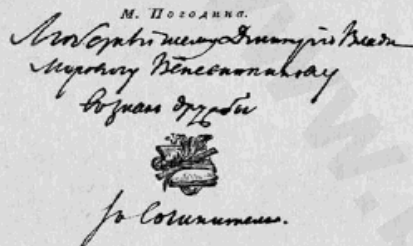 М. Погодина.
Любезнѣйшему Дмитрію Влади
мировичу Веневитинову
въ знакъ дружбы
Сочинитель.